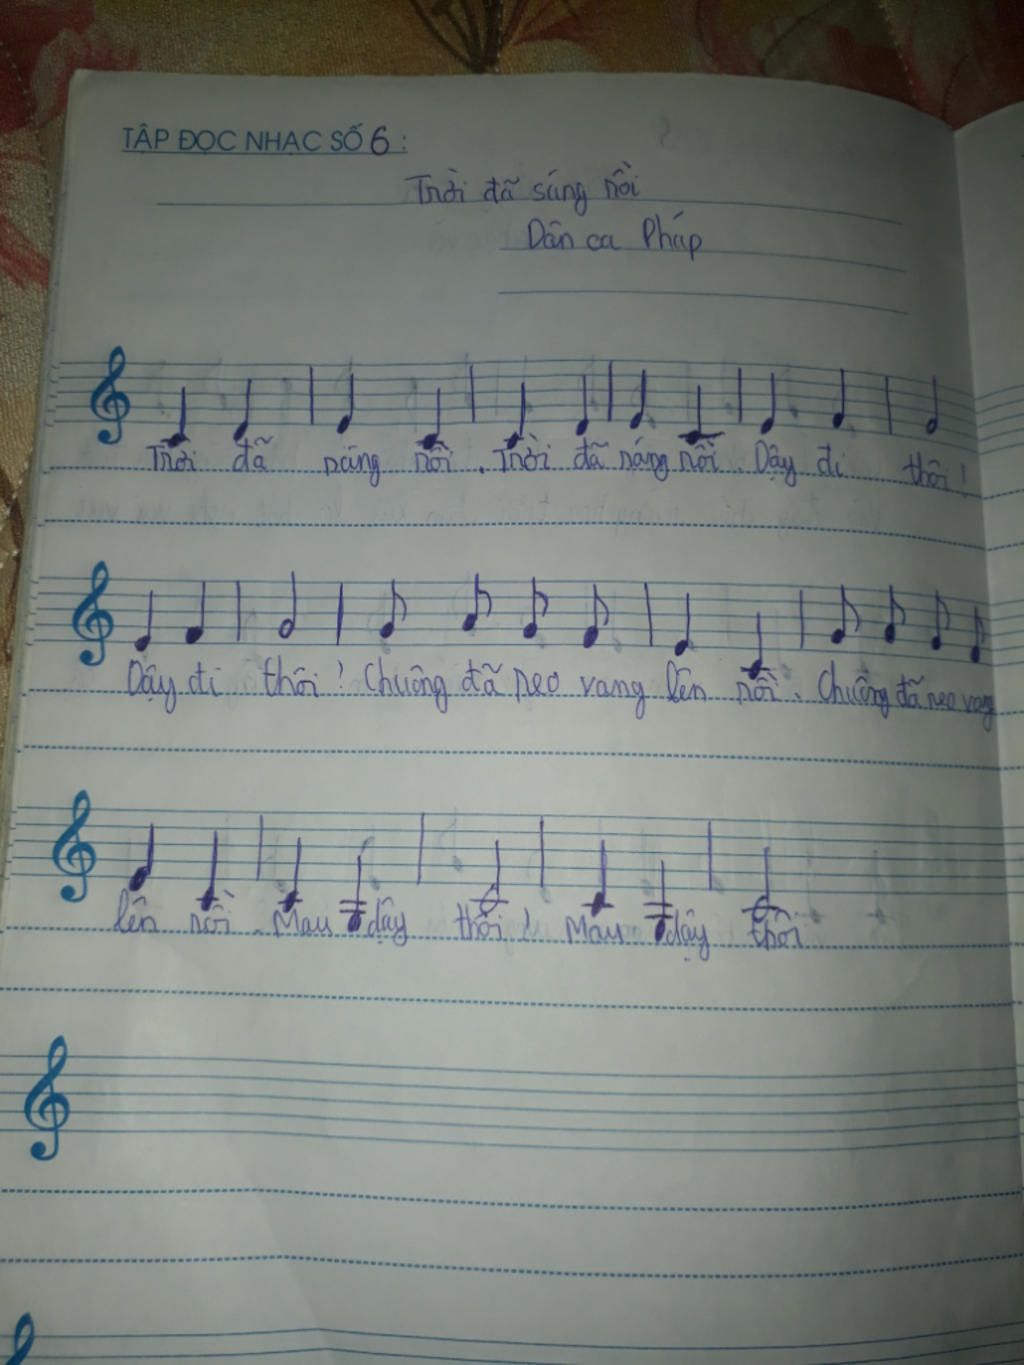 TẬP ĐỌC NHẠC SỐ 6 :
Trời đã sáng rồi
Dân ca Pháp
Trời đã sáng rồi . Trời đã sáng rồi . Dậy đi thôi !
Dậy đi thôi ! Chuông đã reo vang lên rồi . Chuông đã reo vang
lên rồi . Mau dậy thôi ! Mau dậy thôi